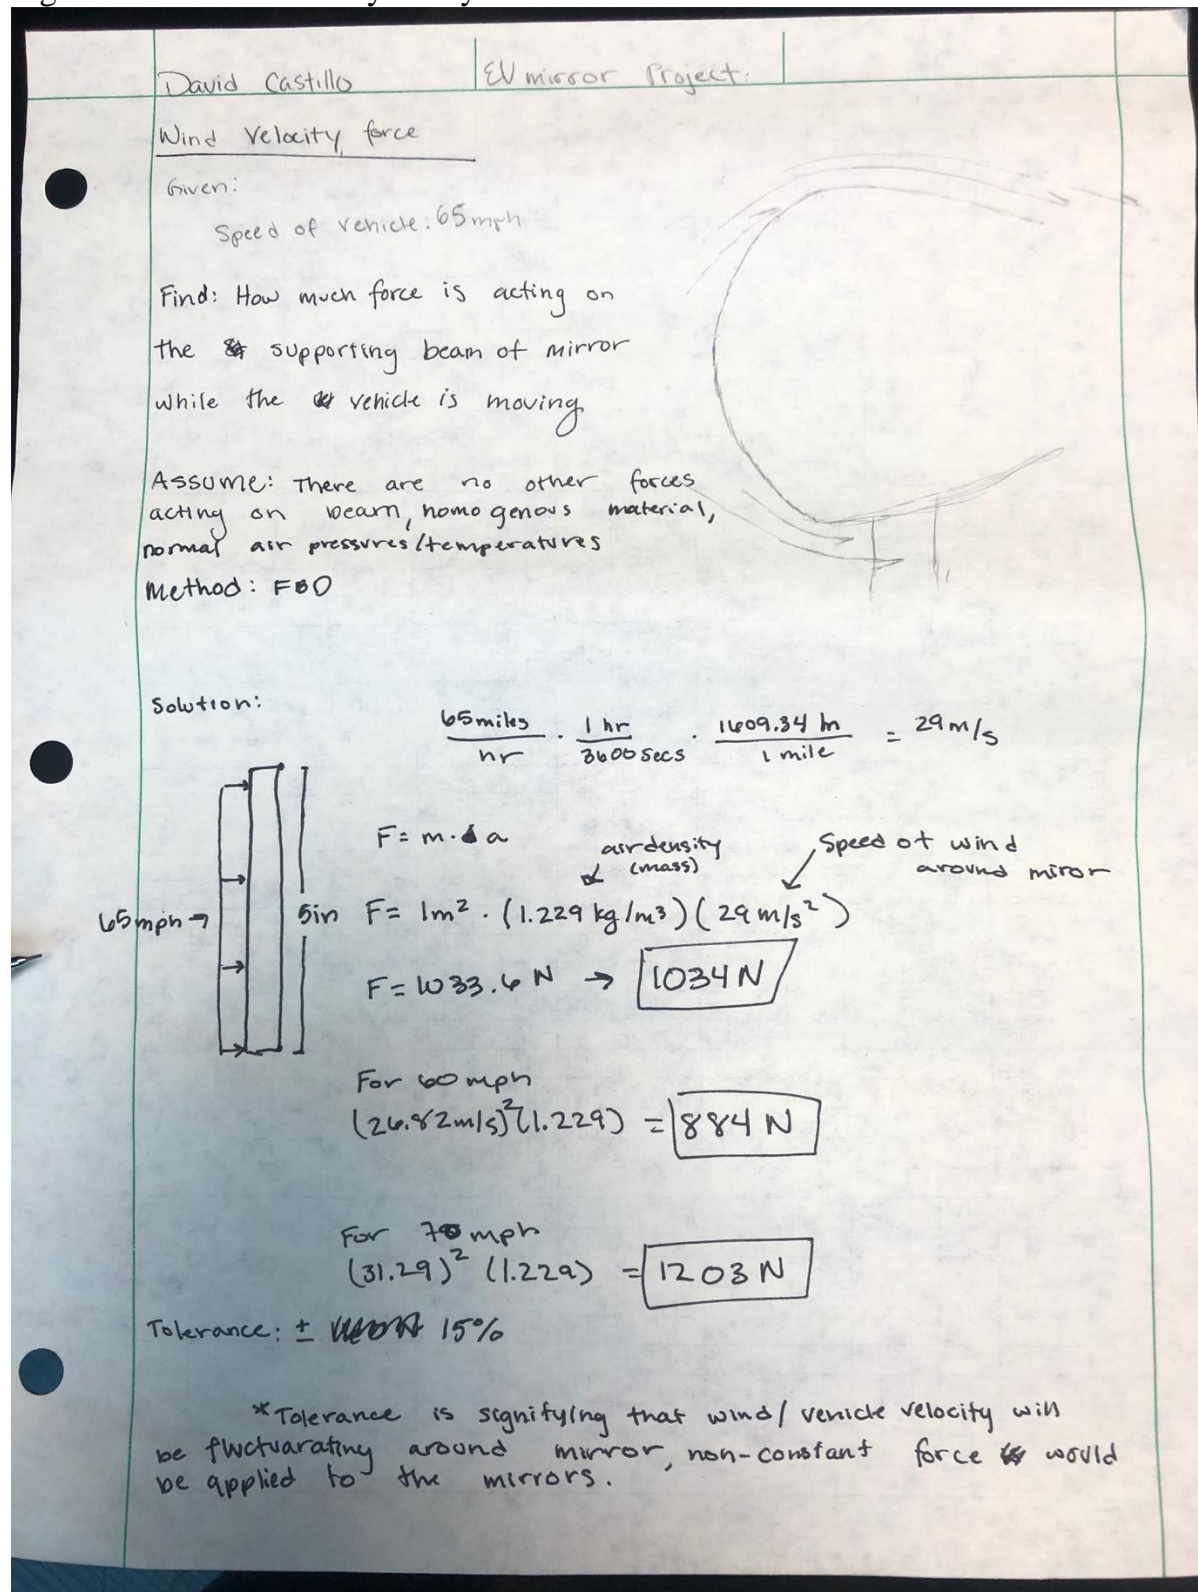 David Castillo
EV mirror Project.
Wind Velocity force
Given:
Speed of vehicle: 65mph
Find: How much force is acting on
the supporting beam of mirror
while the vehicle is moving
Assume: There are no other forces
acting on beam, homogenous material,
normal air pressures/temperatures
Method: FBD
Solution:
65miles/hr · 1 hr/3600 Secs · 1609.34 m/1 mile = 29 m/s
F= m·a
air density
(mass)
Speed of wind
around miror
65mph→
5in
F= 1m² · (1.229 kg/m³)(29 m/s²)
F= 1033.6 N → 1034 N
For 60 mph
(26.82m/s)²(1.229) = 884 N
For 70 mph
(31.29)² (1.229) = 1203 N
Tolerance: ± 15%
*Tolerance is signifying that wind/ vehicle velocity will
be fluctuarating around mirror, non-constant force would
be applied to the mirrors.